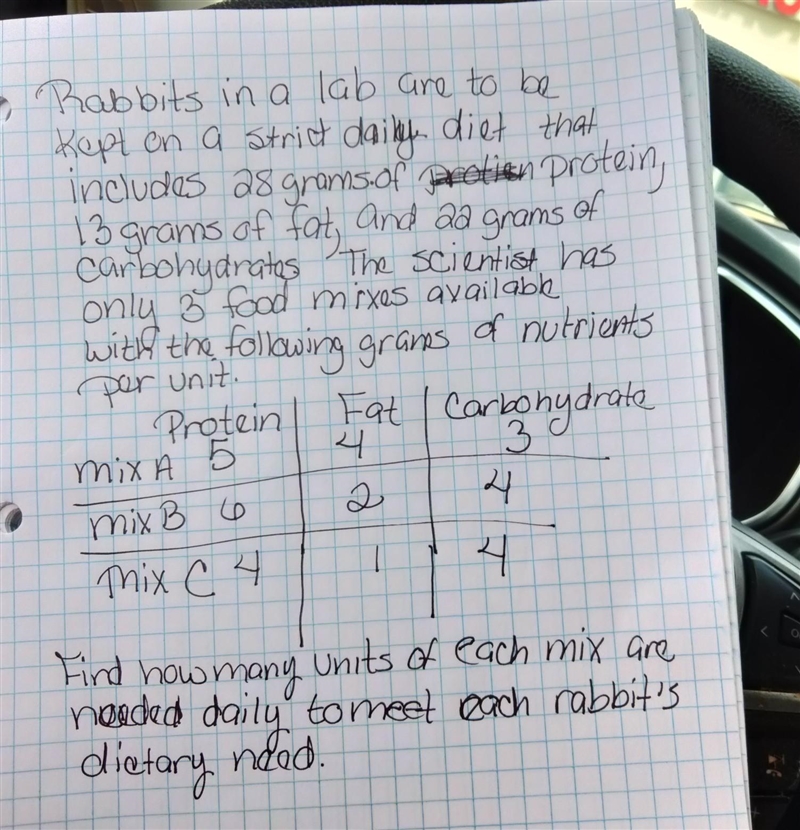 Rabbits in a lab are to be
kept on a strict daily diet that
includes 28 grams of protein,
13 grams of fat, and 22 grams of
carbohydrates. The scientist has
only 3 food mixes available
with the following grams of nutrients
per unit.
Protein Fat Carbohydrate
mix A 5 4 3
mix B 6 2 4
mix C 4 1 4
Find how many units of each mix are
needed daily to meet each rabbit's
dietary need.